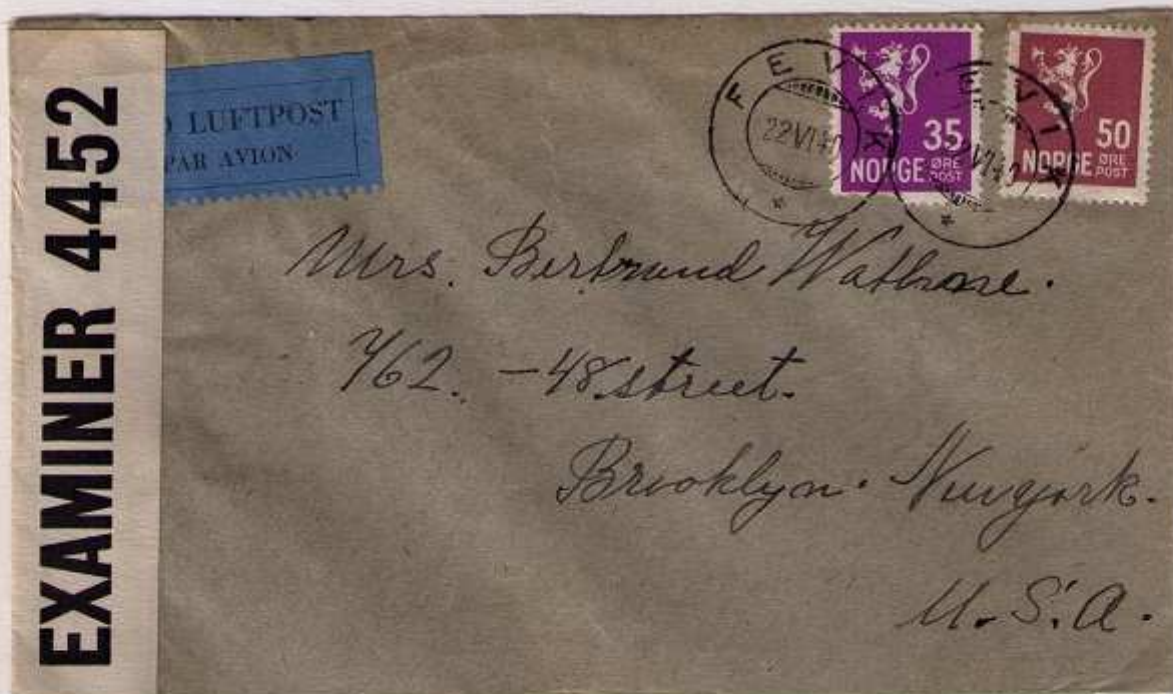 EXAMINER 4452
LUFTPOST
PAR AVION
FEVIK
22 VI 40
35
NORGE ØRE
POST
EVIK
VI 40
50
NORGE ØRE
POST
Mrs. Bertrand Wathne.
762. - 48 street.
Brooklyn. Nuvgjork.
U.S.A.